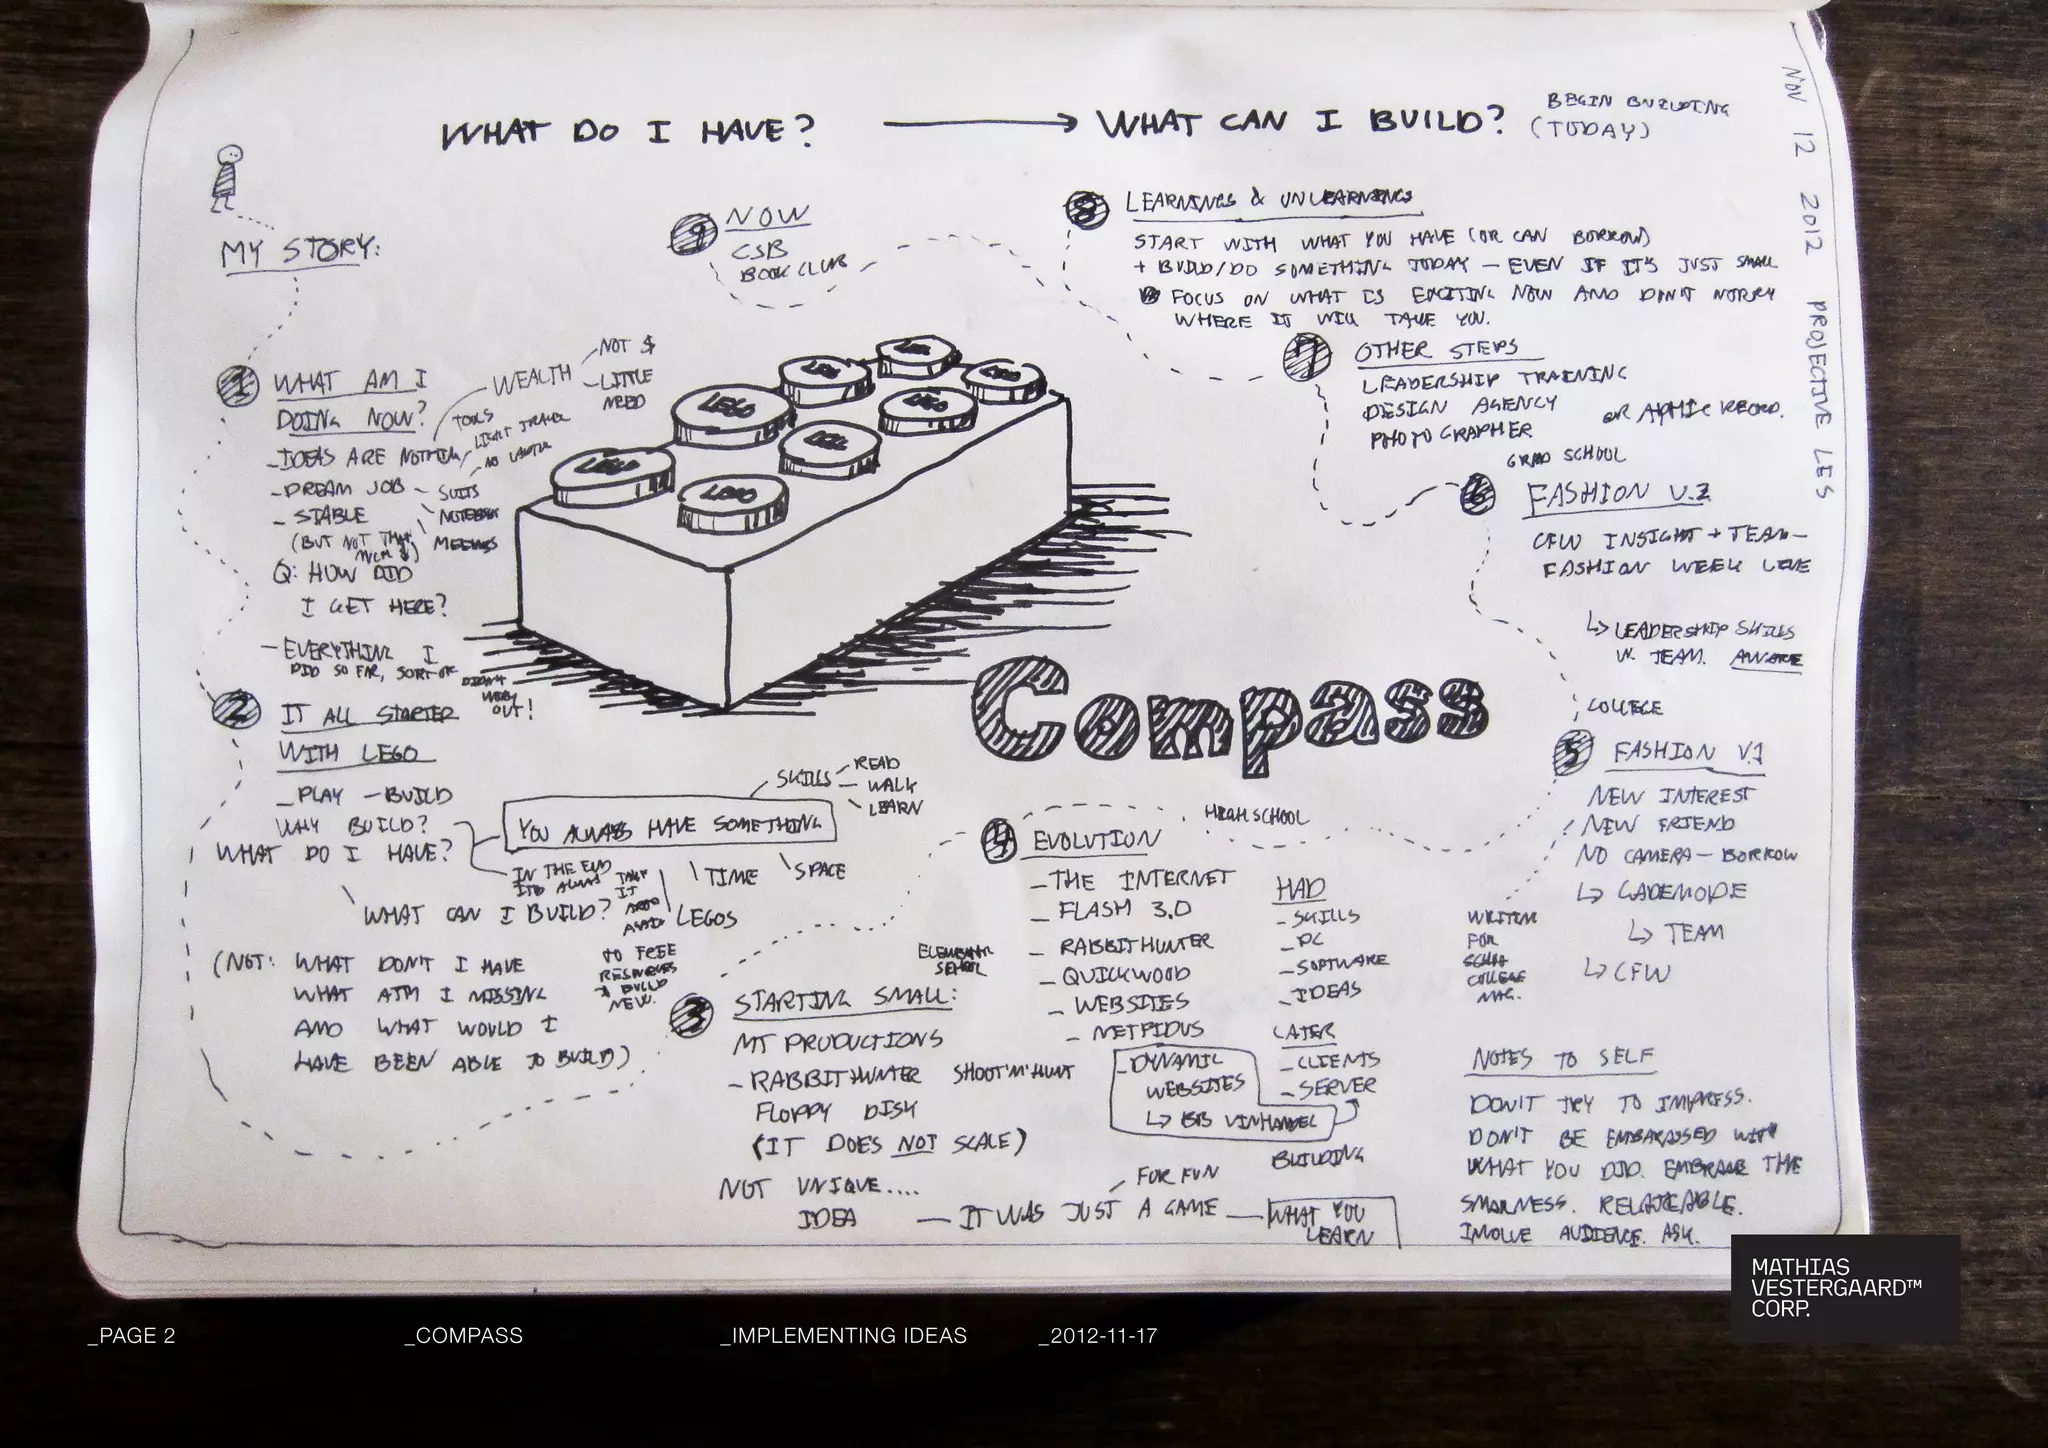 WHAT DO I HAVE?
WHAT CAN I BUILD?
BEGIN BUILDING
(TODAY)
NOV 12 2012 PROJECTIVE LES
MY STORY:
1 WHAT AM I
DOING NOW?
WEALTH
NOT $
LITTLE
NEED
TOOLS
LIGHT TRAVEL
NO
- IDEAS ARE NOTHING
- DREAM JOB - SUITS
NOTEBOOK
MEETINGS
- STABLE
(BUT NOT THAT
MUCH $)
Q: HOW DID
I GET HERE?
- EVERYTHING I
DID SO FAR, SORT OF
DIDN'T
WORK
OUT!
2 IT ALL STARTED
WITH LEGO
- PLAY - BUILD
WHY BUILD?
WHAT DO I HAVE?
YOU ALWAYS HAVE SOMETHING
SKILLS
READ
WALK
LEARN
TIME
SPACE
LEGOS
IN THE END
TAKE
IT
APART
TO FREE
RESOURCES
BUILD
NEW.
WHAT CAN I BUILD?
(NOT: WHAT DON'T I HAVE
WHAT AM I MISSING
AND WHAT WOULD I
HAVE BEEN ABLE TO BUILD)
LEGO
LEGO
LEGO
LEGO
LEGO
LEGO
LEGO
LEGO
Compass
3 STARTING SMALL:
ELEMENTARY
SCHOOL
MT PRODUCTIONS
- RABBITHUNTER SHOOT'N'HUNT
FLOPPY DISK
(IT DOES NOT SCALE)
NOT UNIQUE....
IDEA
- IT WAS JUST A GAME -
FOR FUN
WHAT YOU
LEARN
4 EVOLUTION
HIGH SCHOOL
- THE INTERNET
- FLASH 3.0
- RABBITHUNTER
- QUICKWOOD
- WEBSITES
- NETPIDUS
- DYNAMIC
WEBSITES
↳ BB VINHANDEL
HAD
- SKILLS
- PC
- SOFTWARE
- IDEAS
LATER
- CLIENTS
- SERVER
BUILDING
5 FASHION V.1
COLLEGE
NEW INTEREST
NEW FRIEND
NO CAMERA - BORROW
↳ CADEMODE
↳ TEAM
↳ CFW
WRITING
FOR
COLLEGE
MAG.
6 FASHION V.2
GRAD SCHOOL
CFW INSIGHT + TEAM -
FASHION WEEK LIVE
↳ LEADERSHIP SKILLS
W. TEAM. AWARE
7 OTHER STEPS
LEADERSHIP TRAINING
DESIGN AGENCY
PHOTOGRAPHER
GRAPHIC RECORD.
8 LEARNINGS & UNLEARNINGS
START WITH WHAT YOU HAVE (OR CAN BORROW)
+ BUILD/DO SOMETHING TODAY - EVEN IF IT'S JUST SMALL
FOCUS ON WHAT IS EXCITING NOW AND DON'T WORRY
WHERE IT WILL TAKE YOU.
9 NOW
CSB
BOOK CLUB
NOTES TO SELF
DON'T TRY TO IMPRESS.
DON'T BE EMBARASSED WITH
WHAT YOU DID. EMBRACE THE
SMALLNESS. RELATEABLE.
INVOLVE AUDIENCE. ASK.
MATHIAS
VESTERGAARD™
CORP.
_PAGE 2
_COMPASS
_IMPLEMENTING IDEAS
_2012-11-17